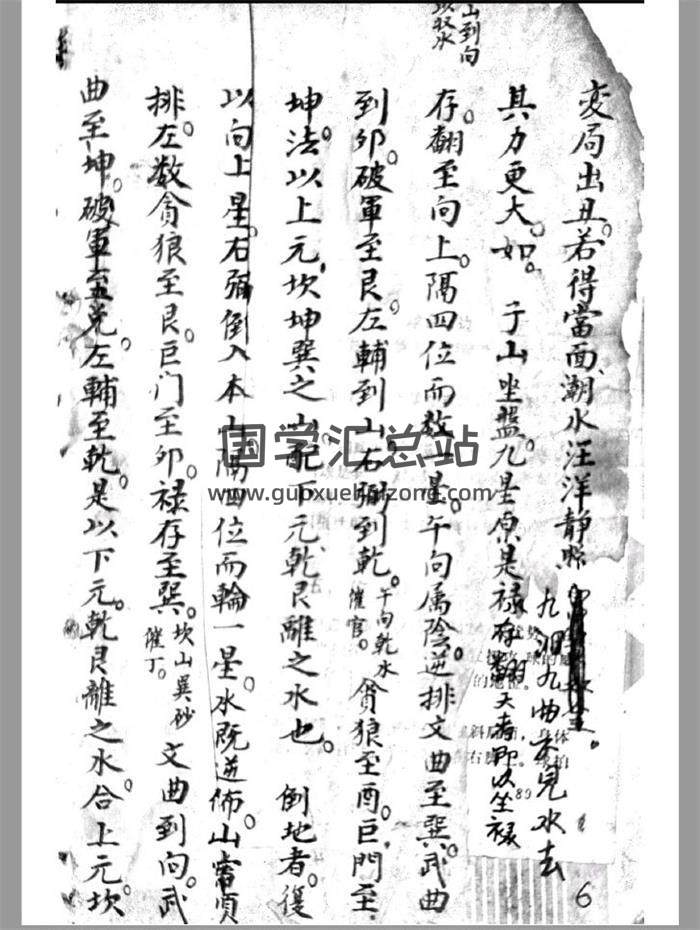 山到向
以収水
変局出丑。若得當面潮水汪洋静照
九洄九曲不見水去
其力更大。如。子山坐盤。九星原是禄存翻天者即以坐禄
存。翻至向上。隔四位而数一星。午向属陰。逆排文曲至巽。武曲
到卯。破軍至艮。左輔到山。右弼到乾。午向乾水催官。貪狼至酉。巨門至
坤。法以上元坎坤巽之山。配下元乾艮離之水也。倒地者。復
以向上星。右弼倒入本山。隔四位而輪一星。水既逆佈。山當順
排。左数貪狼至艮。巨门至卯。禄存至巽。坎山巽砂催丁。文曲到向。武
曲至坤。破軍至兑。左輔至乾。是以下元。乾艮離之水合上元。坎
6
国学汇总站
www.guoxuehuizong.com